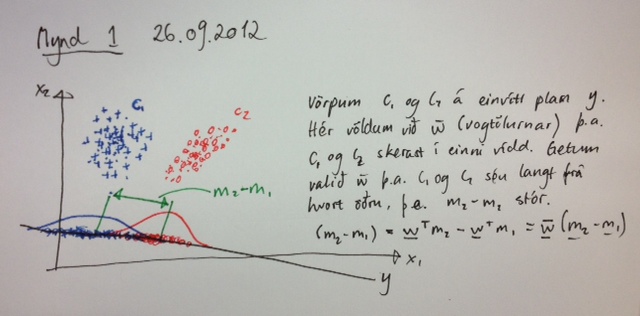 Mynd 1 26.09.2012
x₂
C₁
C₂
m₂-m₁
x₁
y
Vörpum C₁ og C₂ á einvítt plan y.
Hér völdum við w̄ (vogtölurnar) þ.a.
C₁ og C₂ skerast í einni vídd. Getum
valið w̄ þ.a. C₁ og C₂ séu langt frá
hvort öðru, þ.e. m₂-m₂ stór.
(m₂-m₁) = w̲ᵀm₂ - w̲ᵀm₁ = w̲̄(m̲₂-m̲₁)